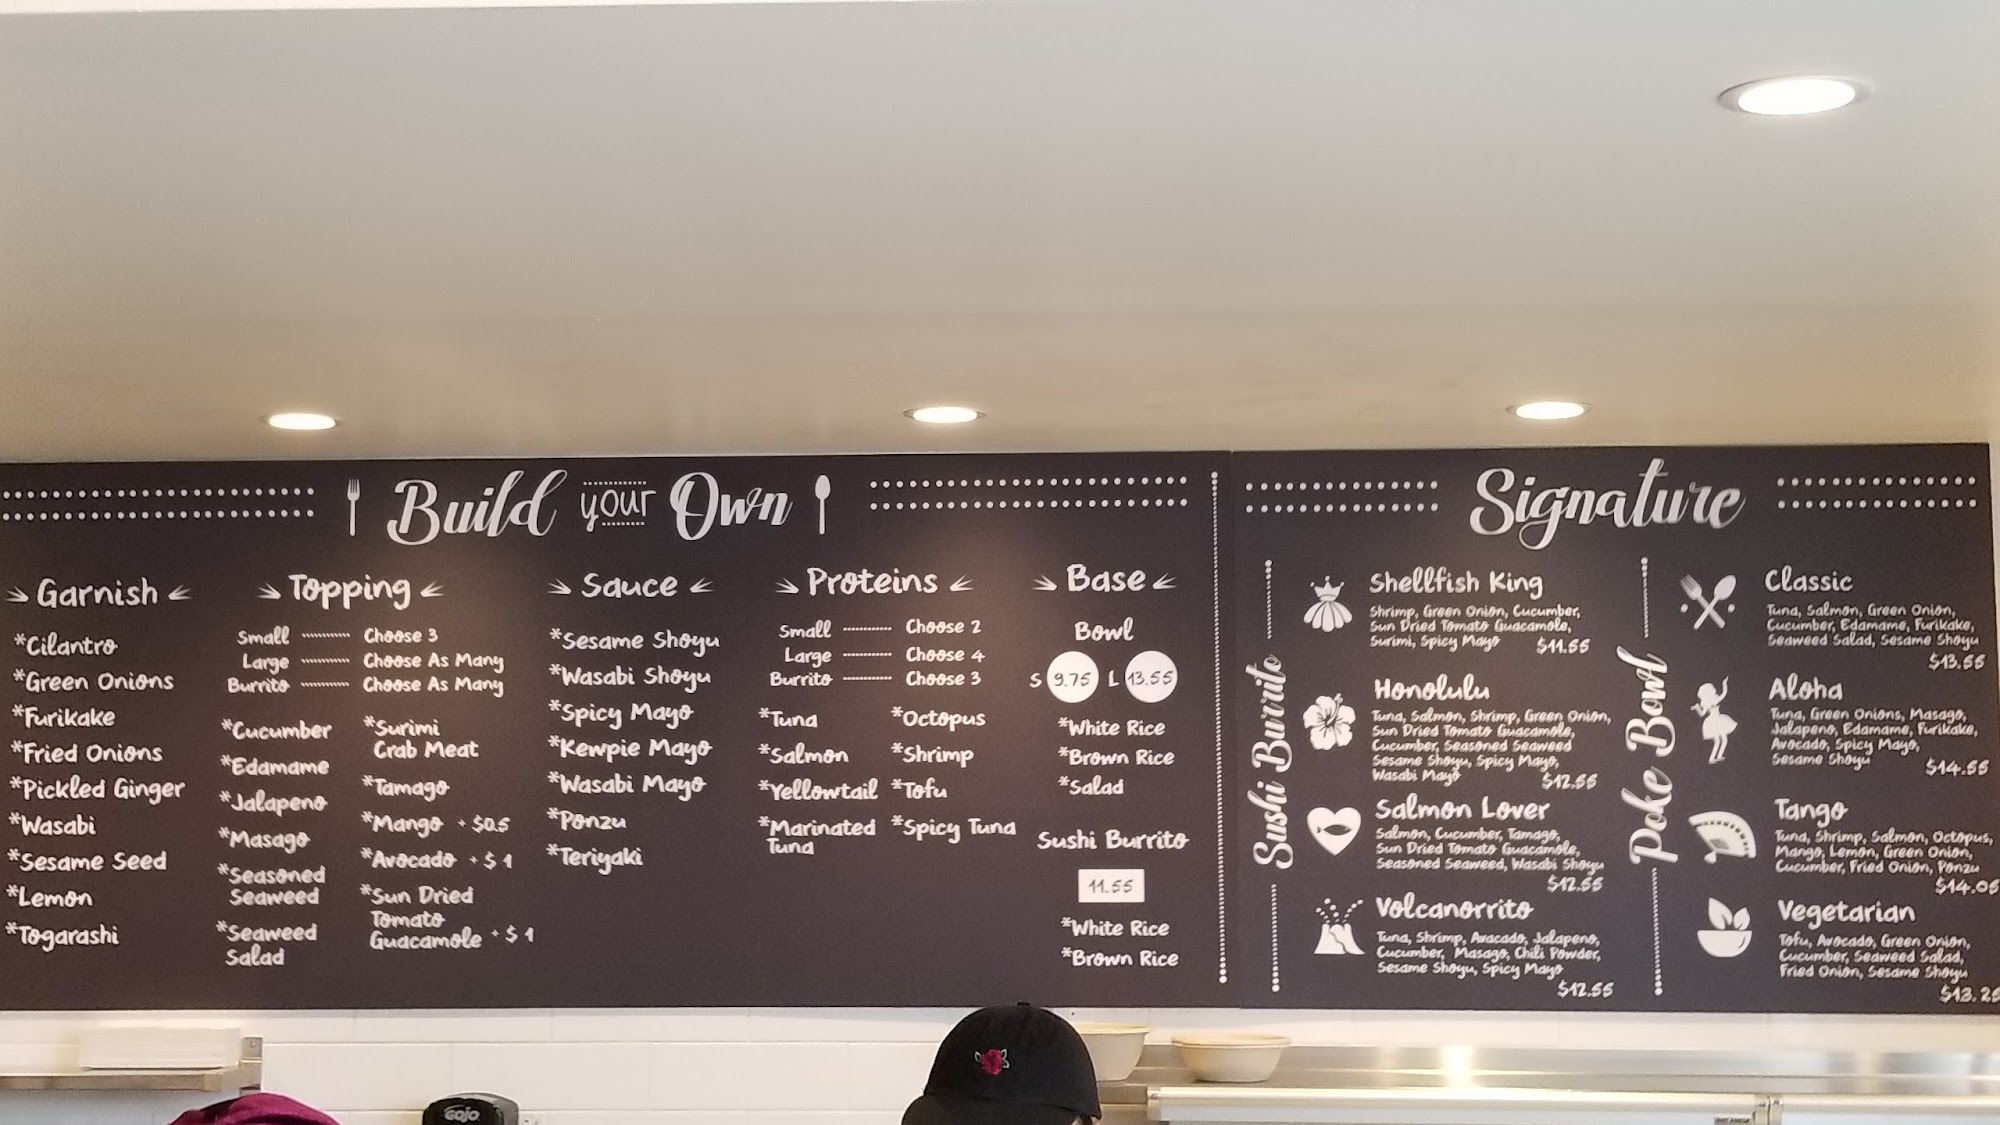 Build your Own
Garnish
*Cilantro
*Green Onions
*Furikake
*Fried Onions
*Pickled Ginger
*Wasabi
*Sesame Seed
*Lemon
*Togarashi
Topping
Small ---------- Choose 3
Large ---------- Choose As Many
Burrito ---------- Choose As Many
*Cucumber
*Edamame
*Jalapeno
*Masago
*Seasoned
Seaweed
*Seaweed
Salad
*Surimi
Crab Meat
*Tamago
*Mango + $0.5
*Avocado + $1
*Sun Dried
Tomato
Guacamole + $1
Sauce
*Sesame Shoyu
*Wasabi Shoyu
*Spicy Mayo
*Kewpie Mayo
*Wasabi Mayo
*Ponzu
*Teriyaki
Proteins
Small ---------- Choose 2
Large ---------- Choose 4
Burrito ---------- Choose 3
*Tuna
*Salmon
*Yellowtail
*Marinated
Tuna
*Octopus
*Shrimp
*Tofu
*Spicy Tuna
Base
Bowl
S 9.75 L 13.55
*White Rice
*Brown Rice
*Salad
Sushi Burrito
11.55
*White Rice
*Brown Rice
Signature
Sushi Burrito
Shellfish King
Shrimp, Green Onion, Cucumber,
Sun Dried Tomato Guacamole,
Surimi, Spicy Mayo $11.55
Honolulu
Tuna, Salmon, Shrimp, Green Onion,
Sun Dried Tomato Guacamole,
Cucumber, Seasoned Seaweed
Sesame Shoyu, Spicy Mayo,
Wasabi Mayo $12.55
Salmon Lover
Salmon, Cucumber, Tamago,
Sun Dried Tomato Guacamole,
Seasoned Seaweed, Wasabi Shoyu
$12.55
Volcanorrito
Tuna, Shrimp, Avacado, Jalapeno,
Cucumber, Masago, Chili Powder,
Sesame Shoyu, Spicy Mayo
$12.55
Poke Bowl
Classic
Tuna, Salmon, Green Onion,
Cucumber, Edamame, Furikake,
Seaweed Salad, Sesame Shoyu
$13.55
Aloha
Tuna, Green Onions, Masago,
Jalapeno, Edamame, Furikake,
Avocado, Spicy Mayo,
Sesame Shoyu $14.55
Tango
Tuna, Shrimp, Salmon, Octopus,
Mango, Lemon, Green Onion,
Cucumber, Fried Onion, Ponzu
$14.05
Vegetarian
Tofu, Avocado, Green Onion,
Cucumber, Seaweed Salad,
Fried Onion, Sesame Shoyu
$13.25
GOJO